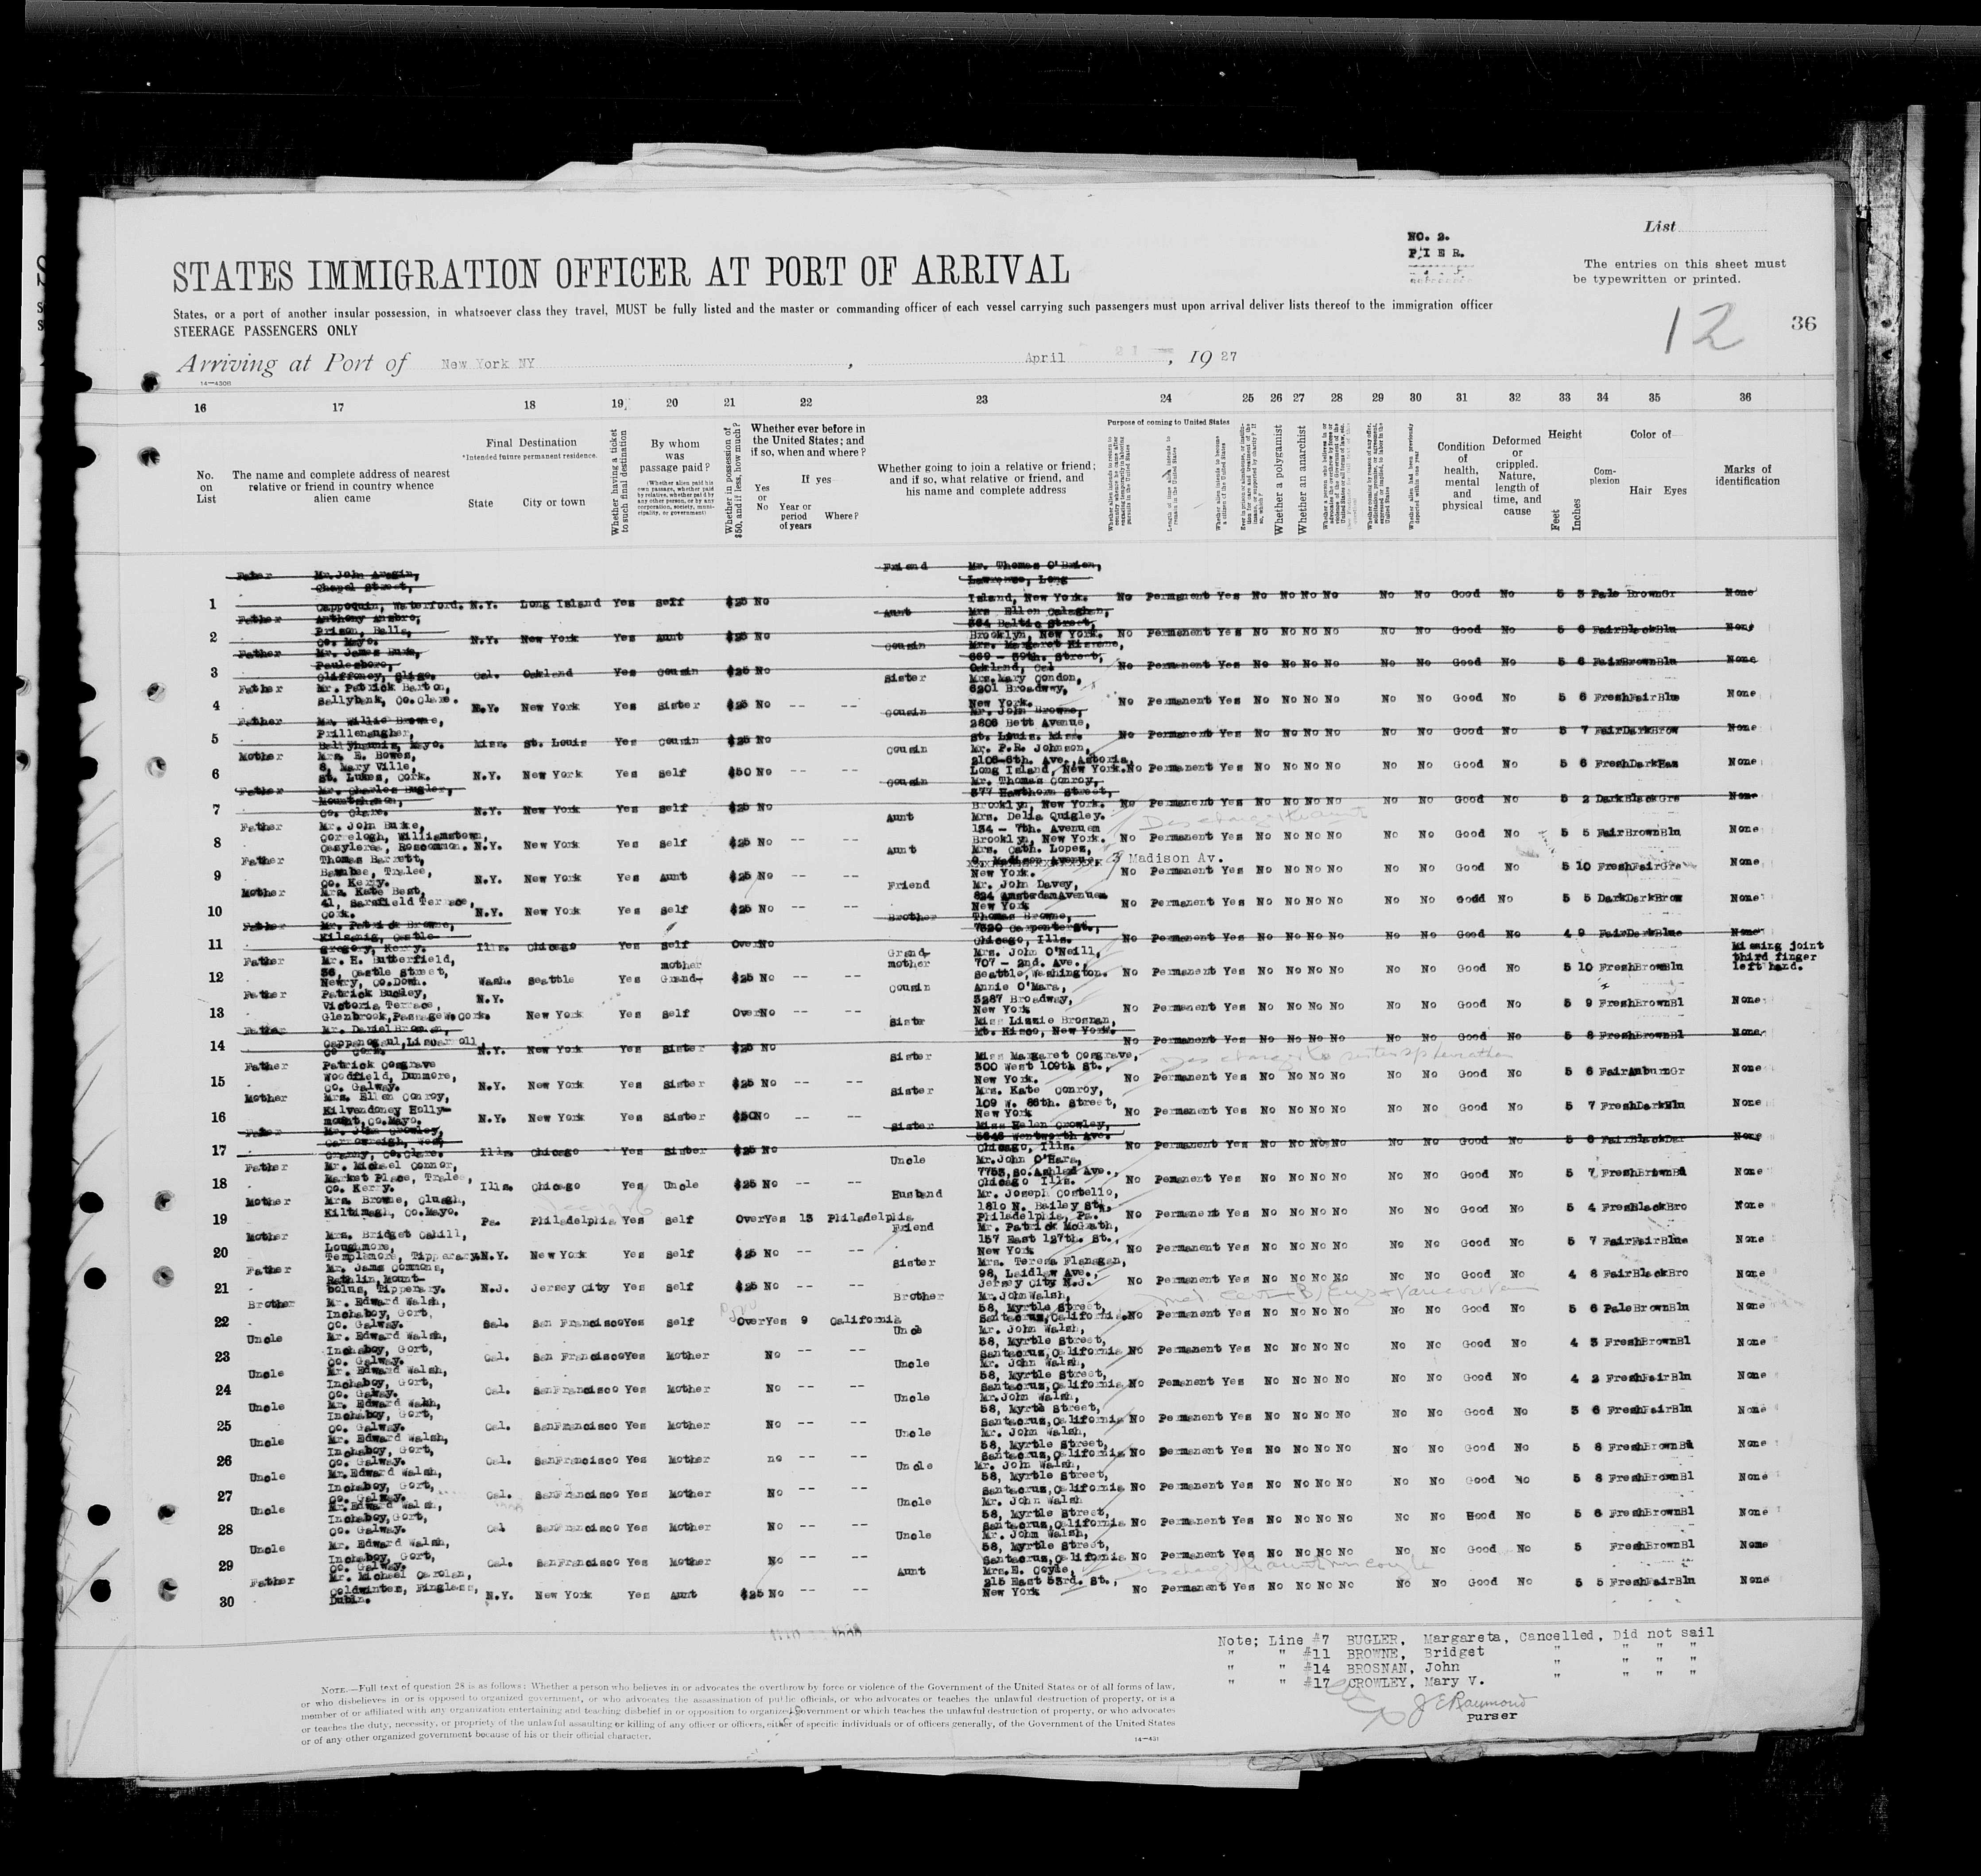 List
NO. 2.
P I E R.
STATES IMMIGRATION OFFICER AT PORT OF ARRIVAL
The entries on this sheet must
be typewritten or printed.
States, or a port of another insular possession, in whatsoever class they travel, MUST be fully listed and the master or commanding officer of each vessel carrying such passengers must upon arrival deliver lists thereof to the immigration officer
STEERAGE PASSENGERS ONLY
12 36
Arriving at Port of New York NY, April 21, 1927
14—430B
16 17 18 19 20 21 22 23 24 25 26 27 28 29 30 31 32 33 34 35 36
No. on List
The name and complete address of nearest relative or friend in country whence alien came
Final Destination
*Intended future permanent residence.
State City or town
Whether having a ticket to such final destination
By whom was passage paid?
(Whether alien paid his own passage, whether paid by relative, whether paid by any other person, or by any corporation, society, municipality, or government)
Whether in possession of $50, and if less, how much?
Whether ever before in the United States; and if so, when and where?
Yes or No
If yes—
Year or period of years
Where?
Whether going to join a relative or friend; and if so, what relative or friend, and his name and complete address
Purpose of coming to United States
Whether a polygamist
Whether an anarchist
Condition of health, mental and physical
Deformed or crippled. Nature, length of time, and cause
Height
Feet Inches
Complexion
Color of—
Hair Eyes
Marks of identification
1 Cappoquin, Waterford. N.Y. Long Island Yes Self $25 No Friend Mr. Thomas O'Brien, Lawrence, Long Island, New York. No Permanent Yes No No No No No No Good No 5 3 Pale Brown Gr None
2 Father Anthony Ansbro, Prison, Balla, Co. Mayo. N.Y. New York Yes Aunt $25 No Aunt Mrs Ellen Calaghan, 364 Baltic Street, Brooklyn, New York. No Permanent Yes No No No No No No Good No 5 6 Fair Black Blu None
3 Father Mr. James Burk, Cliffoney, Sligo. Cal. Oakland Yes Cousin $25 No Cousin 669 - 39th. Street, Oakland, Cal No Permanent Yes No No No No No No Good No 5 6 Fair Brown Blu None
4 Father Mr. Patrick Barton, Sallybank, Co. Clare. N.Y. New York Yes Sister $25 No -- -- Sister Mrs. Mary Condon, 6201 Broadwwy, New York. No Permanent Yes No No No No No No Good No 5 6 Fresh Fair Blue None
5 Father Mr. Willie Browne, Ballyhaunis, Mayo. Miss. St. Louis Yes Cousin $25 No Cousin Mr. John Browne, 2806 Bett Avenue, St. Louis. Miss. No Permanent Yes No No No No No No Good No 5 7 Fair Dark Brow None
6 Mother Mrs. E. Bowes, 8, Mary Ville, St. Lukes, Cork. N.Y. New York Yes Self $50 No -- -- Cousin Mr. P.R. Johnson, 2106-8th. Ave., Astoria, Long Island, New York. No Permanent Yes No No No No No No Good No 5 6 Fresh Dark Haz None
7 Father Mr. Charles Bugler, Mountshanon, Co. Clare. N.Y. New York Yes Self $25 No Cousin Mr. Thomas Conroy, 377 Hawthorn Street, Brooklyn, New York. No Permanent Yes No No No No No No Good No 5 2 Dark Black Gre None
8 Father Mr. John Burke, Correlogh, Williamstown, Casylerea, Roscommon. N.Y. New York Yes Self $25 No -- -- Aunt Mrs. Delia Quigley. 134 - 7th. Avenuem Brooklyn, New York. No Permanent Yes No No No No No No Good No 5 5 Fair Brown Blu None
9 Father Thomas Barrett, Tralee, Co. Kerry. N.Y. New York Yes Aunt $25 No -- -- Aunt Mrs. Cath. Lopez, Madison Av. New York. No Permanent Yes No No No No No No Good No 5 10 Fresh Fair Gre None
10 Mother Mrs. Kate Best, 41, Sarsfield Terrace, Cork. N.Y. New York Yes Self $25 No -- -- Friend Mr. John Davey, 824 Amsterdam Avenuem New York No Permanent Yes No No No No No No Good No 5 5 Dark Dark Brow None
11 Father Mr. Patrick Browne, Castle-gregory, Kerry. Ills. Chicago Yes Self Over No Brother Thomas Browne, 7320 Carpenter St., Chicago, Ills. No Permanent Yes No No No No No No Good No 4 9 Fair Dark Blue None
12 Father Mr. H. Butterfield, 36, Castle Street, Newry, Co. Down. Wash. Seattle Yes Grand-mother $25 No -- -- Grand-mother Mrs. John O'Neill, 707 - 2nd. Ave., Seattle, Washington. No Permanent Yes No No No No No No Good No 5 10 Fresh Brow Blu Missing joint third finger left hand.
13 Father Patrick Buckley, Victoria Terrace, Glenbrook, Passage W. Cork. N.Y. New York Yes Self Over No -- -- Cousin Annie O'Mara, 3287 Broadway, New York No Permanent Yes No No No No No No Good No 5 9 Fresh Brown Bl None
14 Father Mr. Daniel Brosnan, Liscarroll, Co Cork. N.Y. New York Yes Sister $25 No Sister Miss Lizzie Brosnan, Mt. Kisco, New York. No Permanent Yes No No No No No No Good No 5 8 Fresh Brown Bl None
15 Father Patrick Cosgrave Woodfield, Dunmore, Co. Galway. N.Y. New York Yes Sister $25 No -- -- Sister Miss Margaret Cosgrave, 300 West 109th St., New York. No Permanent Yes No No No No No No Good No 5 6 Fair Auburn Gr None
16 Mother Mrs. Ellen Conroy, Kilvendoney Holly-mount, Co. Mayo. N.Y. New York Yes Sister $50 No -- -- Sister Mrs. Kate Conroy, 109 W. 86th. Street, New York No Permanent Yes No No No No No No Good No 5 7 Fresh Dark Blu None
17 Father Mr. John Crowley, Cranny, Co. Clare. Ills. Chicago Yes Sister $25 No Sister Miss Helen Crowley, 5646 Wentworth Ave. Chicago, Ills. No Permanent Yes No No No No No No Good No 5 6 Fair Black Dar None
18 Father Mr. Michael Connor, Market Place, Tralee, Co. Kerry. Ills. Chicago Yes Uncle $25 No -- -- Uncle Mr. John O'Hara, 7753, So. Ashland Ave., Chicago Ills. No Permanent Yes No No No No No No Good No 5 7 Fresh Brown Bl None
19 Mother Mrs. Browne, Cluagh, Kiltimagh, Co. Mayo. Pa. Philadelphia Yes Self Over Yes 13 Philadelphia Husband Mr. Joseph Costello, 1810 N. Bailey St., Philadelphia, Pa. No Permanent Yes No No No No No No Good No 5 4 Fres Black Bro None
20 Mother Mrs. Bridget Cahill, Loughmore, Templemore, Tipperary. N.Y. New York Yes Self $25 No -- -- Friend Mr. Patrick McGrath, 157 East 127th. St., New York No Permanent Yes No No No No No No Good No 5 7 Fair Fair Blue None
21 Father Mr. Jams Commons, Rathlin, Mount-bolus, Tipperary. N.J. Jersey City Yes Self $25 No -- -- Sister Mrs. Teresa Flanagan, 98, Laidlaw Ave., Jersey City N.J. No Permanent Yes No No No No No No Good No 4 8 Fair Black Bro None
22 Brother Mr. Edward Walsh, Inchaboy, Gort, Co. Galway. Cal. San Francisco Yes Self Over Yes 9 California Brother Mr. John Walsh, 58, Myrtle Street, Santacruz, California. No Permanent Yes No No No No No No Good No 5 6 Pale Brown Blu None
23 Uncle Mr. Edward Walsh, Inchaboy, Gort, Co. Galway. Cal. San Francisco Yes Mother No -- -- Uncle Mr. John Walsh, 58, Myrtle Street, Santacruz, California No Permanent Yes No No No No No No Good No 4 3 Fresh Brown Bl None
24 Uncle Mr. Edward Walsh, Inchaboy, Gort, Co. Galway. Cal. San Francisco Yes Mother No -- -- Uncle Mr. John Walsh, 58, Myrtle Street, Santacruz, California No Permanent Yes No No No No No No Good No 4 2 Fresh Fair Blu None
25 Uncle Mr. Edward Walsh, Inchaboy, Gort, Co. Galway. Cal. San Francisco Yes Mother No -- -- Uncle Mr. John Walsh, 58, Myrtle Street, Santacruz, California No Permanent Yes No No No No No No Good No 3 6 Fresh Fair Blu None
26 Uncle Mr. Edward Walsh, Inchaboy, Gort, Co. Galway. Cal. San Francisco Yes Mother no -- -- Uncle Mr. John Walsh, 58, Myrtle Street, Santacruz, California No Permanent Yes No No No No No No Good No 5 8 Fresh Brown Bl None
27 Uncle Mr. Edward Walsh, Inchaboy, Gort, Co. Galway. Cal. San Francisco Yes Mother No -- -- Uncle Mr. John Walsh, 58, Myrtle Street, Santacruz, California No Permanent Yes No No No No No No Good No 5 8 Fresh Brown Bl None
28 Uncle Mr. Edward Walsh, Inchaboy, Gort, Co. Galway. Cal San Francisco Yes Mother No -- -- Uncle Mr. John Walsh 58, Myrtle Street, Santacruz, California No Permanent Yes No No No No No No Good No 5 6 Fresh Brown Bl None
29 Uncle Mr. Edward Walsh, Inchaboy, Gort, Co. Galway. Cal. San Francisco Yes Mother No -- -- Uncle Mr. John Walsh, 58, Myrtle Street, Santacruz, California No Permanent Yes No No No No No No Good No 5 Fresh Brown Bl None
30 Father Mr. Michael Carolan, Coldwinter, Finglass, Dublin. N.Y. New York Yes Aunt $25 No Aunt Mrs. E. Coyle, 215 East 53rd. St., New York No Permanent Yes No No No No No No Good No 5 5 Fresh Fair Blu None
Note; Line #7 BUGLER, Margareta, Cancelled, Did not sail
" " #11 BROWNE, Bridget " " " "
" " #14 BROSNAN, John " " " "
" " #17 CROWLEY, Mary V. " " " "
J E Raymond
Purser
NOTE.—Full text of question 28 is as follows: Whether a person who believes in or advocates the overthrow by force or violence of the Government of the United States or of all forms of law,
or who disbelieves in or is opposed to organized government, or who advocates the assassination of public officials, or who advocates or teaches the unlawful destruction of property, or is a
member of or affiliated with any organization entertaining and teaching disbelief in or opposition to organized government or which teaches the unlawful destruction of property, or who advocates
or teaches the duty, necessity, or propriety of the unlawful assaulting or killing of any officer or officers, either of specific individuals or of officers generally, of the Government of the United States
or of any other organized government because of his or their official character.
14—431